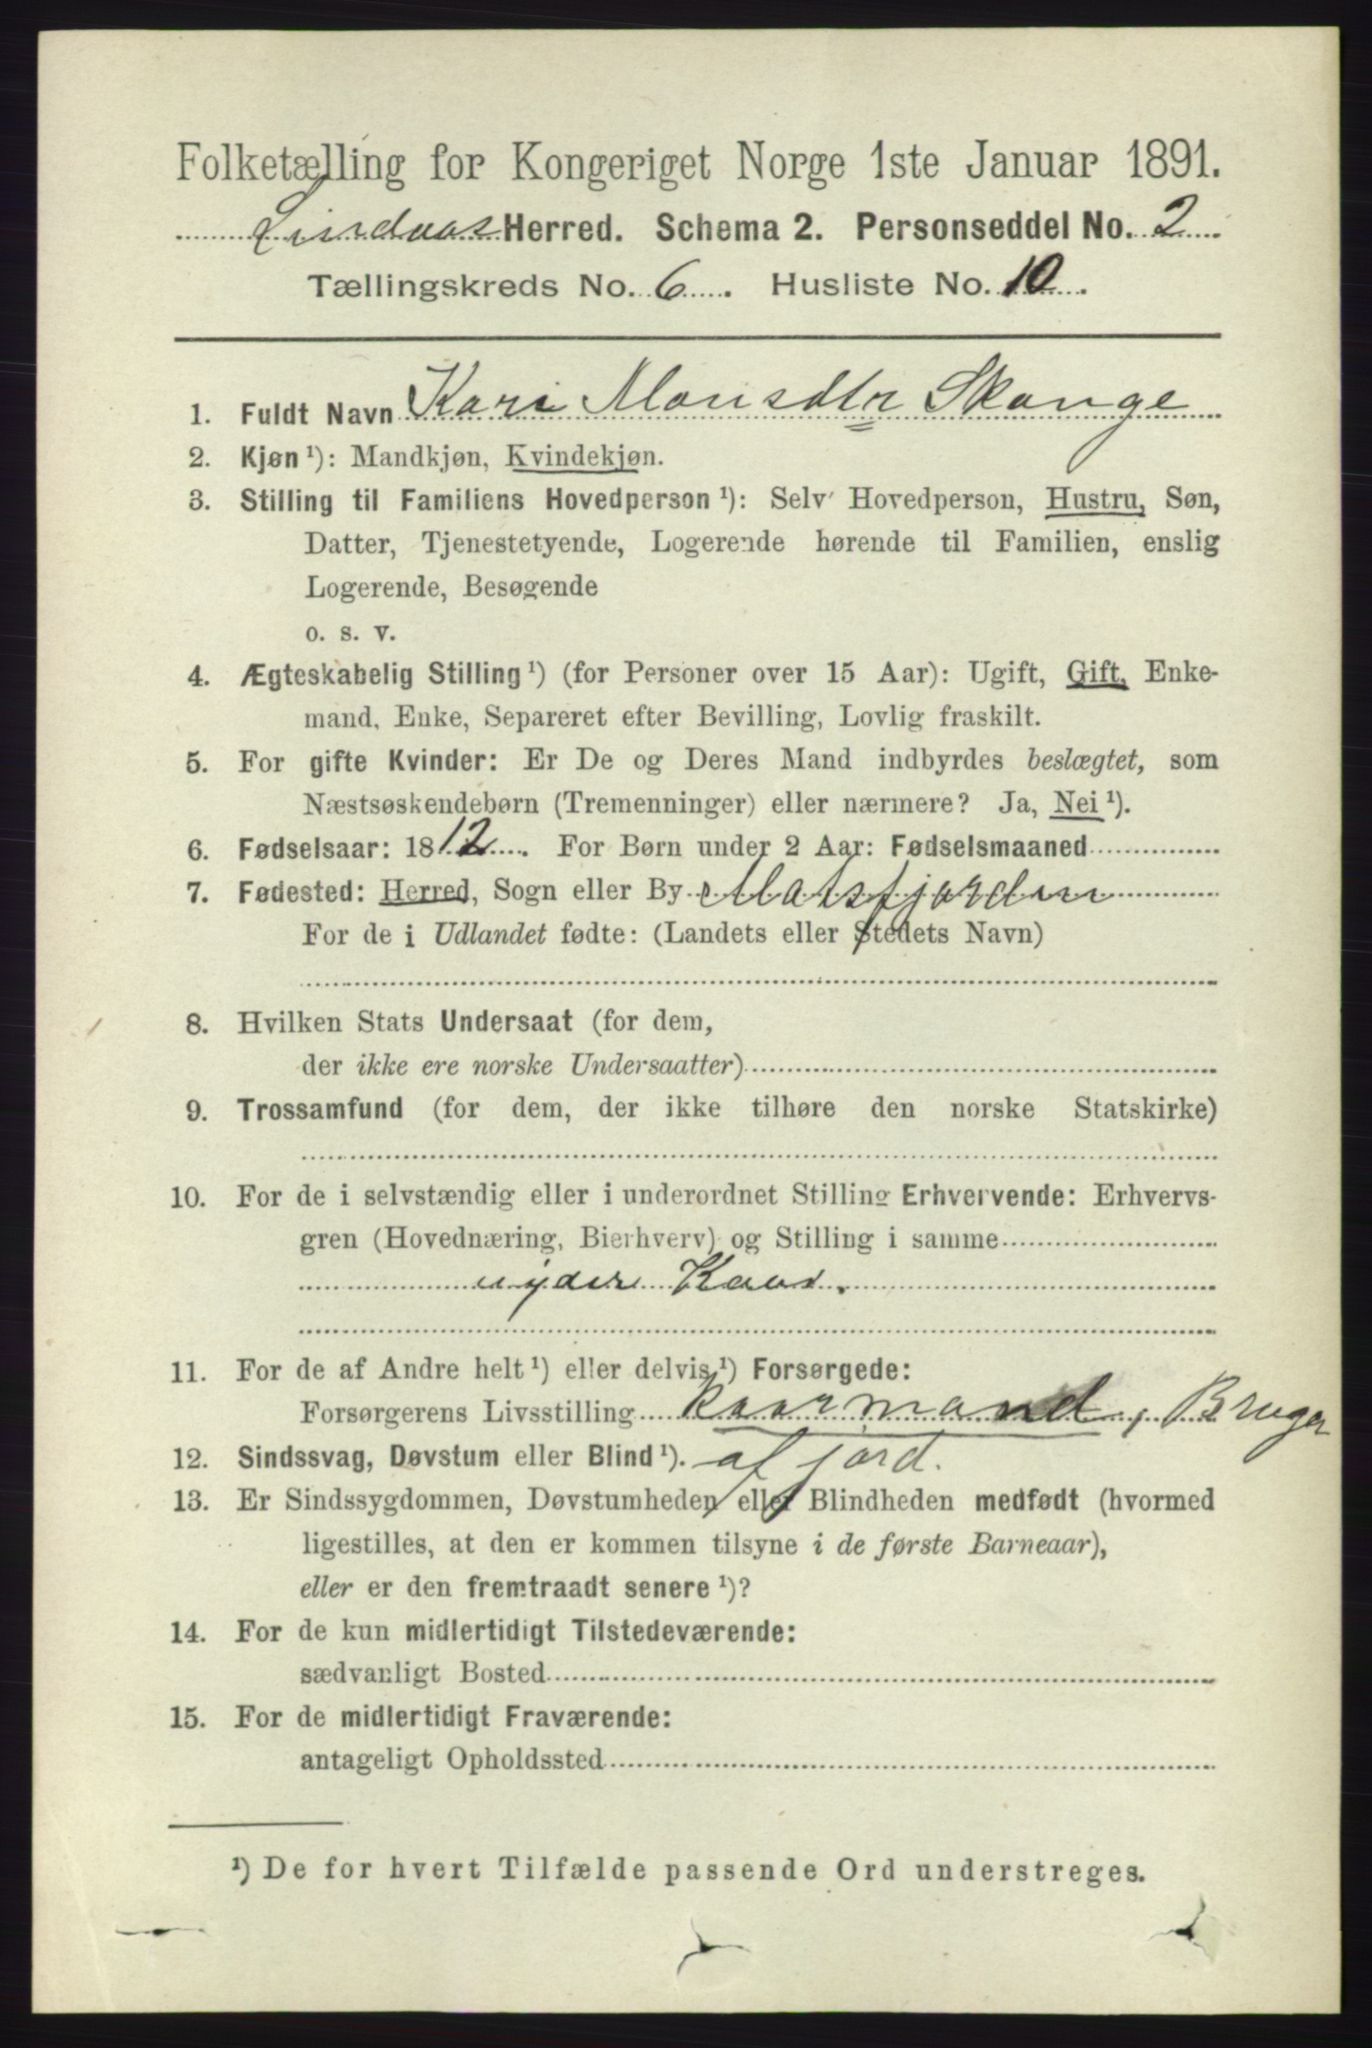 Folketælling for Kongeriget Norge 1ste Januar 1891.
Lindaas Herred. Schema 2. Personseddel No. 2
Tællingskreds No. 6. Husliste No. 10.
1. Fuldt Navn Kari Monsdtr Skauge
2. Kjøn¹): Mandkjøn, Kvindekjøn.
3. Stilling til Familiens Hovedperson¹): Selv Hovedperson, Hustru, Søn,
Datter, Tjenestetyende, Logerende hørende til Familien, enslig
Logerende, Besøgende
o. s. v.
4. Ægteskabelig Stilling¹) (for Personer over 15 Aar): Ugift, Gift, Enke-
mand, Enke, Separeret efter Bevilling, Lovlig fraskilt.
5. For gifte Kvinder: Er De og Deres Mand indbyrdes beslægtet, som
Næstsøskendebørn (Tremenninger) eller nærmere? Ja, Nei¹).
6. Fødselsaar: 1812. For Børn under 2 Aar: Fødselsmaaned
7. Fødested: Herred, Sogn eller By Matsfjorden
For de i Udlandet fødte: (Landets eller Stedets Navn)
8. Hvilken Stats Undersaat (for dem,
der ikke ere norske Undersaatter)
9. Trossamfund (for dem, der ikke tilhøre den norske Statskirke)
10. For de i selvstændig eller i underordnet Stilling Erhvervende: Erhvervs-
gren (Hovednæring, Bierhverv) og Stilling i samme
nyder Kaar.
11. For de af Andre helt¹) eller delvis¹) Forsørgede:
Forsørgerens Livsstilling Kaarmand, Bruger
12. Sindssvag, Døvstum eller Blind¹). af jord.
13. Er Sindssygdommen, Døvstumheden eller Blindheden medfødt (hvormed
ligestilles, at den er kommen tilsyne i de første Barneaar),
eller er den fremtraadt senere¹)?
14. For de kun midlertidigt Tilstedeværende:
sædvanligt Bosted
15. For de midlertidigt Fraværende:
antageligt Opholdssted
¹) De for hvert Tilfælde passende Ord understreges.